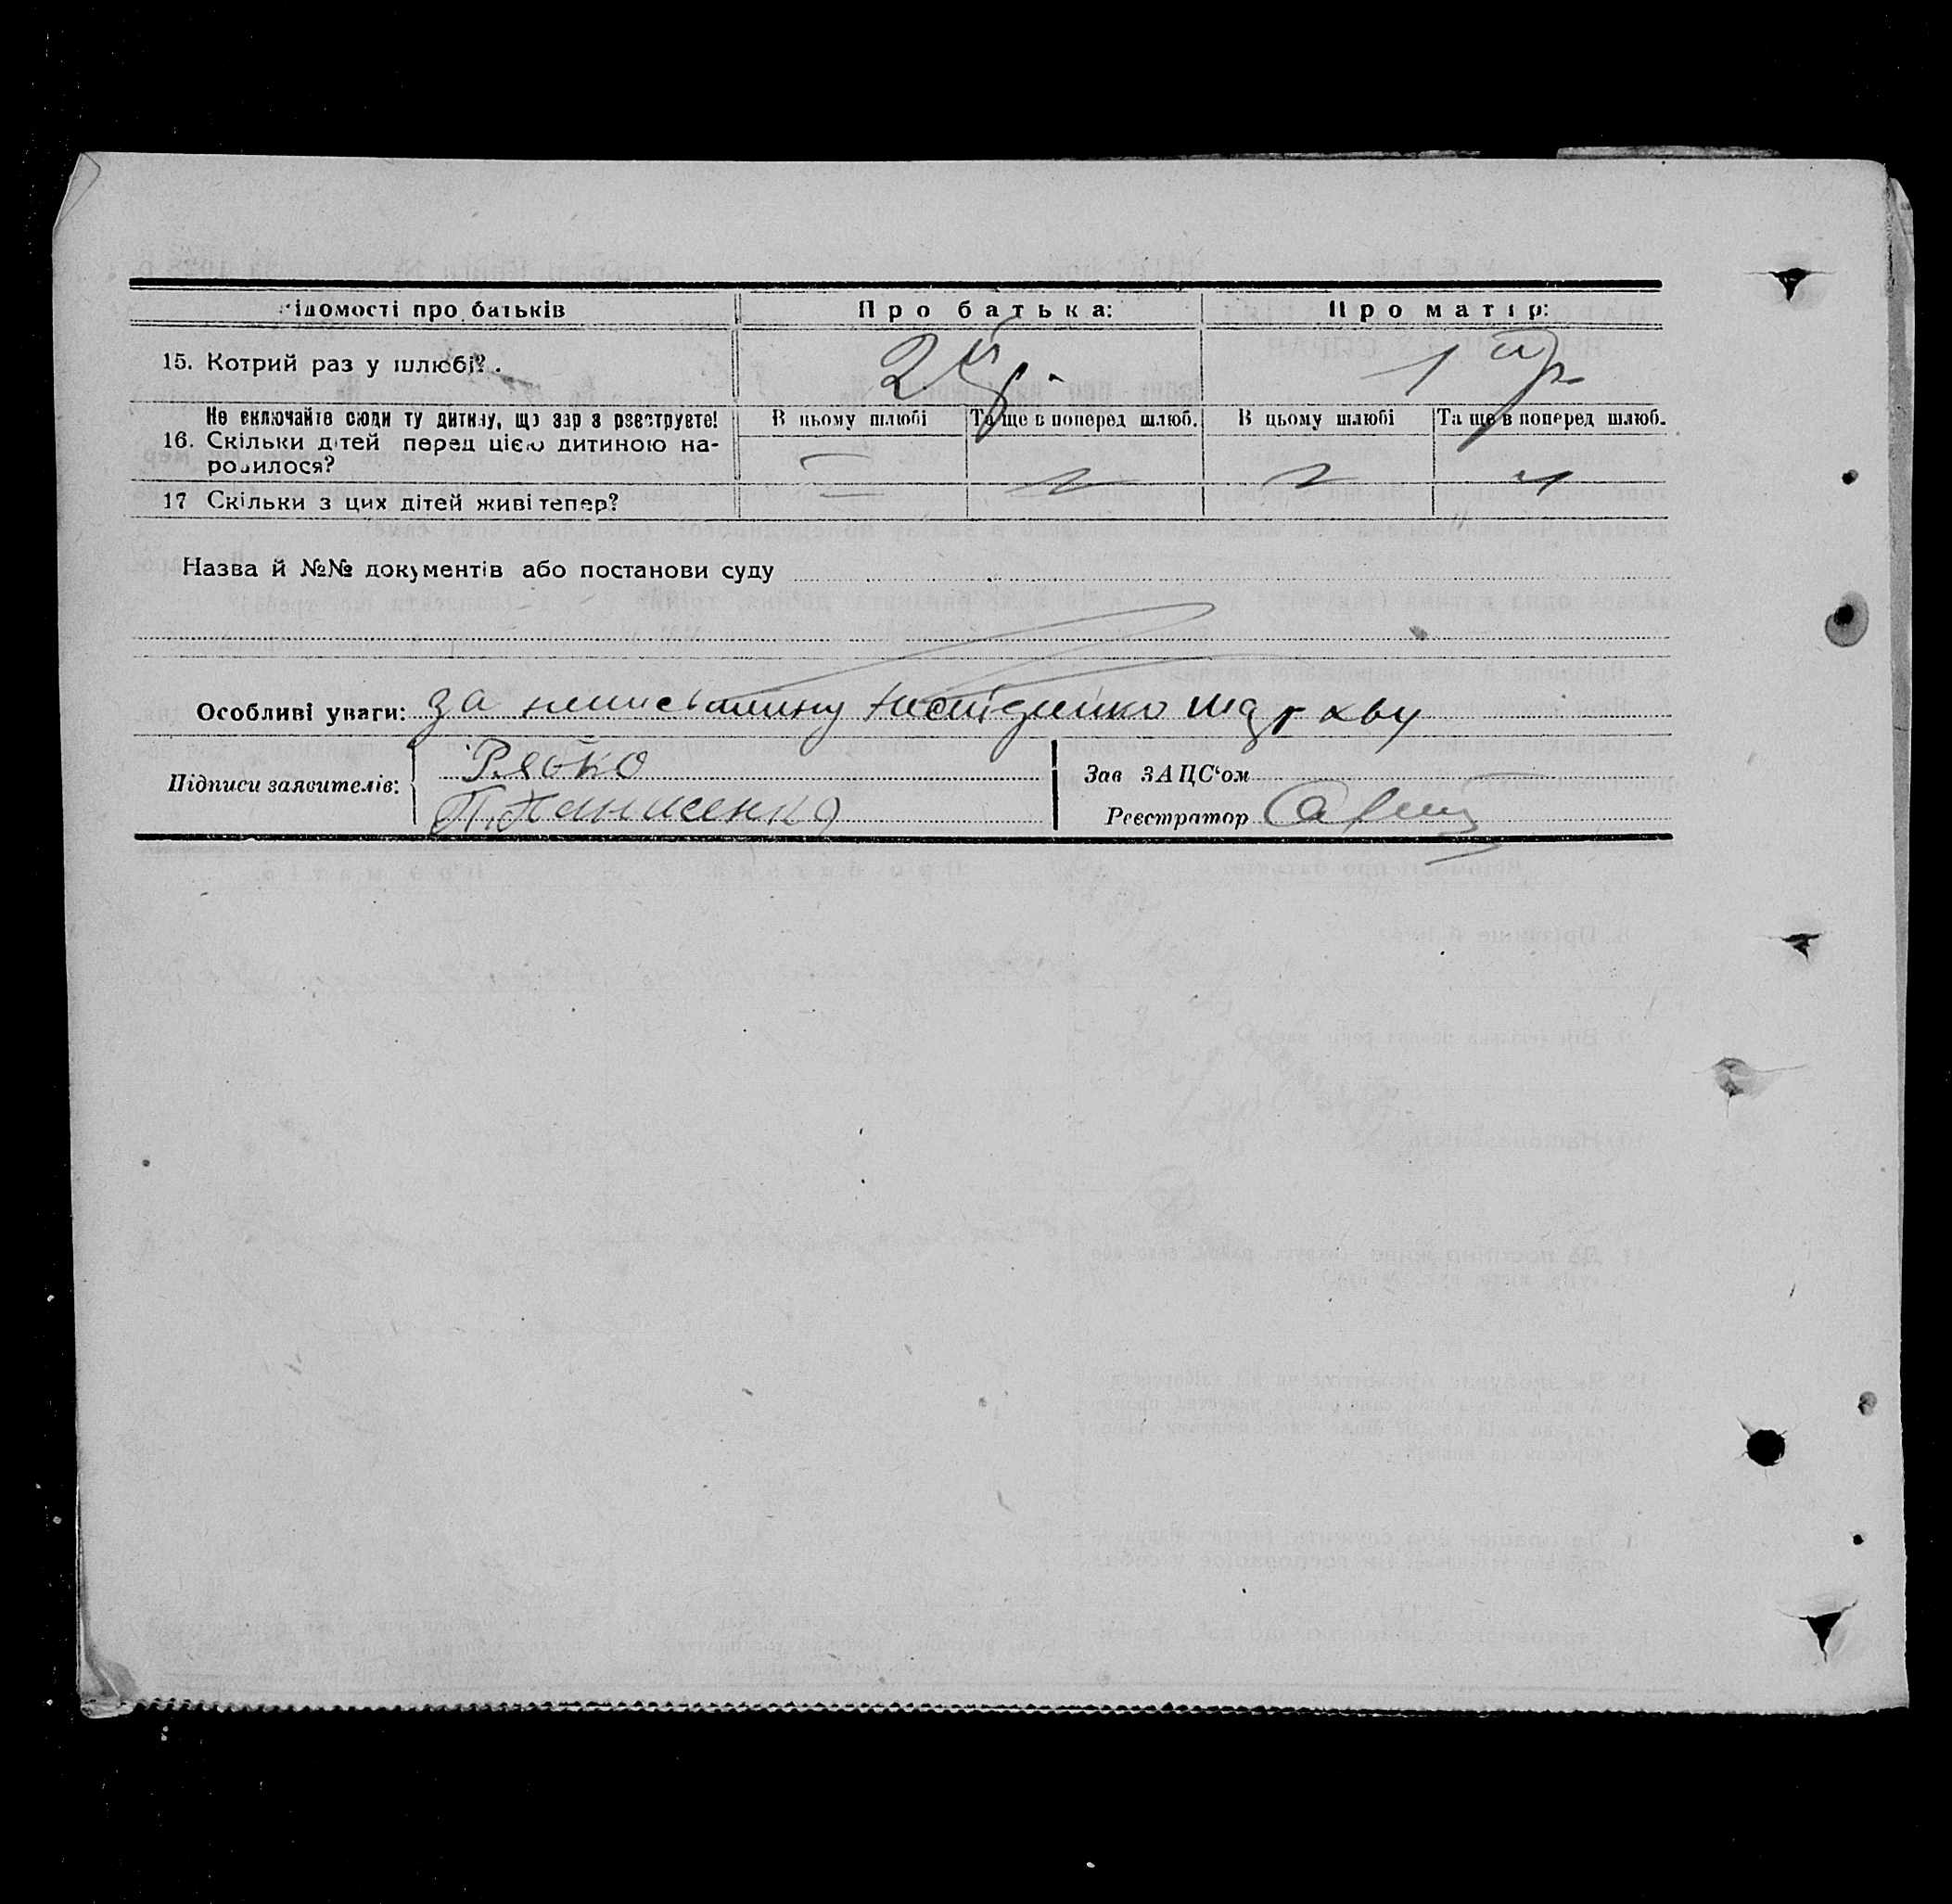 Відомості про батьків
Про батька:
Про матір:
15. Котрий раз у шлюбі?
2й р.
1й р
Не включайте сюди ту дитину, що зараз реєструєте!
В цьому шлюбі
Та ще в поперед шлюб.
В цьому шлюбі
Та ще в поперед шлюб.
16. Скільки дітей перед цією дитиною на-
родилося?
17 Скільки з цих дітей живі тепер?
Назва й №№ документів або постанови суду
Особливі уваги: За
Підписи заявителів:
Рябко
П. Панасенко
Зав ЗАЦС‘ом
Реєстратор